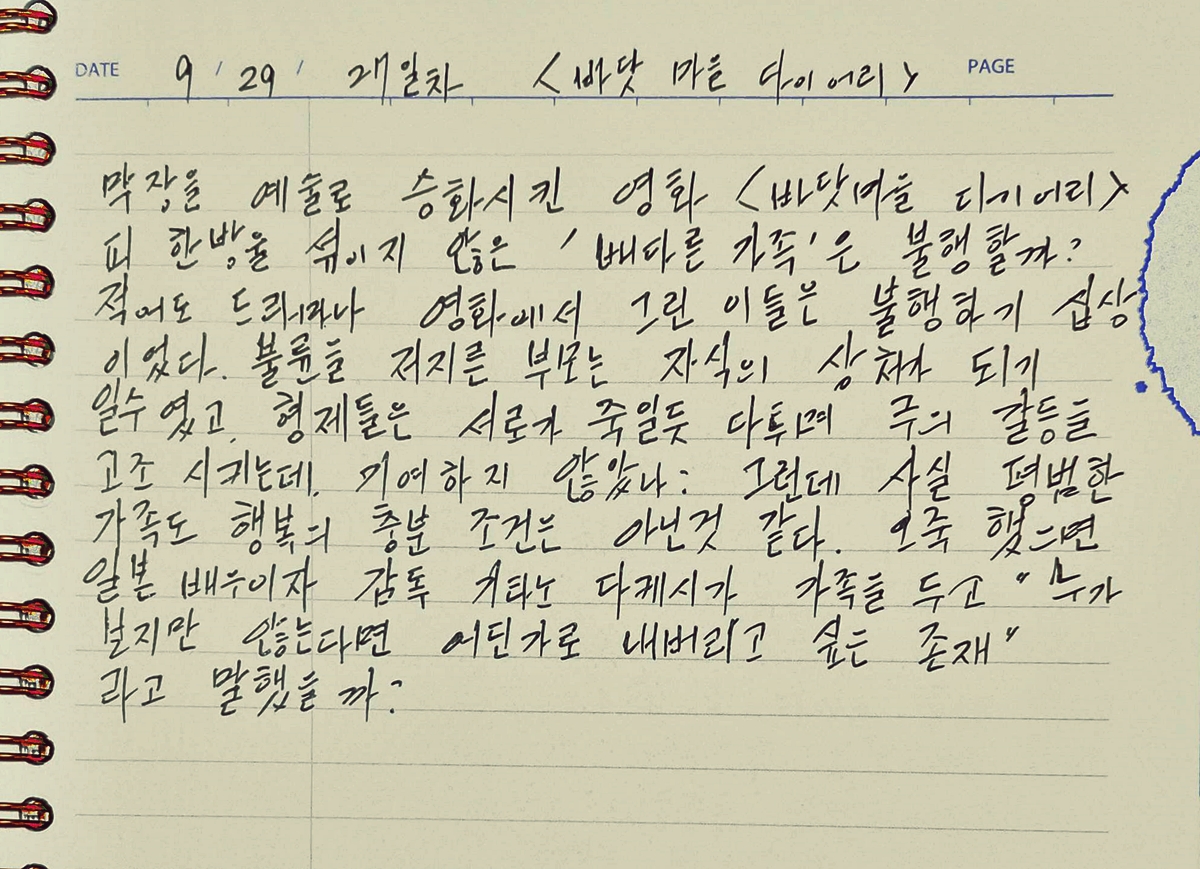 DATE 9 / 29 / 2개일차 <바닷 마을 다이어리> PAGE
막장을 예술로 승화시킨 영화 <바닷마을 다이어리>
피 한방울 섞이지 않은 '배다른 가족'은 불행할까?
적어도 드라마나 영화에서 그린 이들은 불행하기 십상
이었다. 불륜을 저지른 부모는 자식의 상처가 되기
일수였고, 형제들은 서로가 죽일듯 다투며 극의 갈등을
고조 시키는데, 기여하지 않았나? 그런데 사실 평범한
가족도 행복의 충분 조건은 아닌것 같다. 오죽 했으면
일본 배우이자 감독 기타노 다케시가 가족을 두고 "누가
보지만 않는다면 어딘가로 내버리고 싶은 존재"
라고 말했을 까?